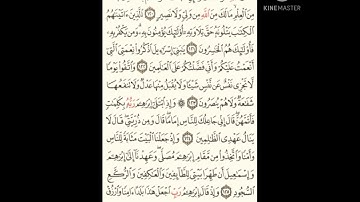 KINEMASTER
مِنَ ٱلْعِلْمِ مَا لَكَ مِنَ ٱللَّهِ مِن وَلِىٍّ وَلَا نَصِيرٍ ١٢٠ ٱلَّذِينَ ءَاتَيْنَٰهُمُ
ٱلْكِتَٰبَ يَتْلُونَهُۥ حَقَّ تِلَاوَتِهِۦٓ أُو۟لَٰٓئِكَ يُؤْمِنُونَ بِهِۦ وَمَن يَكْفُرْ بِهِۦ
فَأُو۟لَٰٓئِكَ هُمُ ٱلْخَٰسِرُونَ ١٢١ يَٰبَنِىٓ إِسْرَٰٓءِيلَ ٱذْكُرُوا۟ نِعْمَتِىَ ٱلَّتِىٓ
أَنْعَمْتُ عَلَيْكُمْ وَأَنِّى فَضَّلْتُكُمْ عَلَى ٱلْعَٰلَمِينَ ١٢٢ وَٱتَّقُوا۟ يَوْمًا
لَّا تَجْزِى نَفْسٌ عَن نَّفْسٍ شَيْـًٔا وَلَا يُقْبَلُ مِنْهَا عَدْلٌ وَلَا تَنفَعُهَا
شَفَٰعَةٌ وَلَا هُمْ يُنصَرُونَ ١٢٣ وَإِذِ ٱبْتَلَىٰٓ إِبْرَٰهِـۧمَ رَبُّهُۥ بِكَلِمَٰتٍ
فَأَتَمَّهُنَّ قَالَ إِنِّى جَاعِلُكَ لِلنَّاسِ إِمَامًا قَالَ وَمِن ذُرِّيَّتِى قَالَ لَا
يَنَالُ عَهْدِى ٱلظَّٰلِمِينَ ١٢٤ وَإِذْ جَعَلْنَا ٱلْبَيْتَ مَثَابَةً لِّلنَّاسِ
وَأَمْنًا وَٱتَّخِذُوا۟ مِن مَّقَامِ إِبْرَٰهِـۧمَ مُصَلًّى وَعَهِدْنَآ إِلَىٰٓ إِبْرَٰهِـۧمَ
وَإِسْمَٰعِيلَ أَن طَهِّرَا بَيْتِىَ لِلطَّآئِفِينَ وَٱلْعَٰكِفِينَ وَٱلرُّكَّعِ
ٱلسُّجُودِ ١٢٥ وَإِذْ قَالَ إِبْرَٰهِـۧمُ رَبِّ ٱجْعَلْ هَٰذَا بَلَدًا ءَامِنًا وَٱرْزُقْ